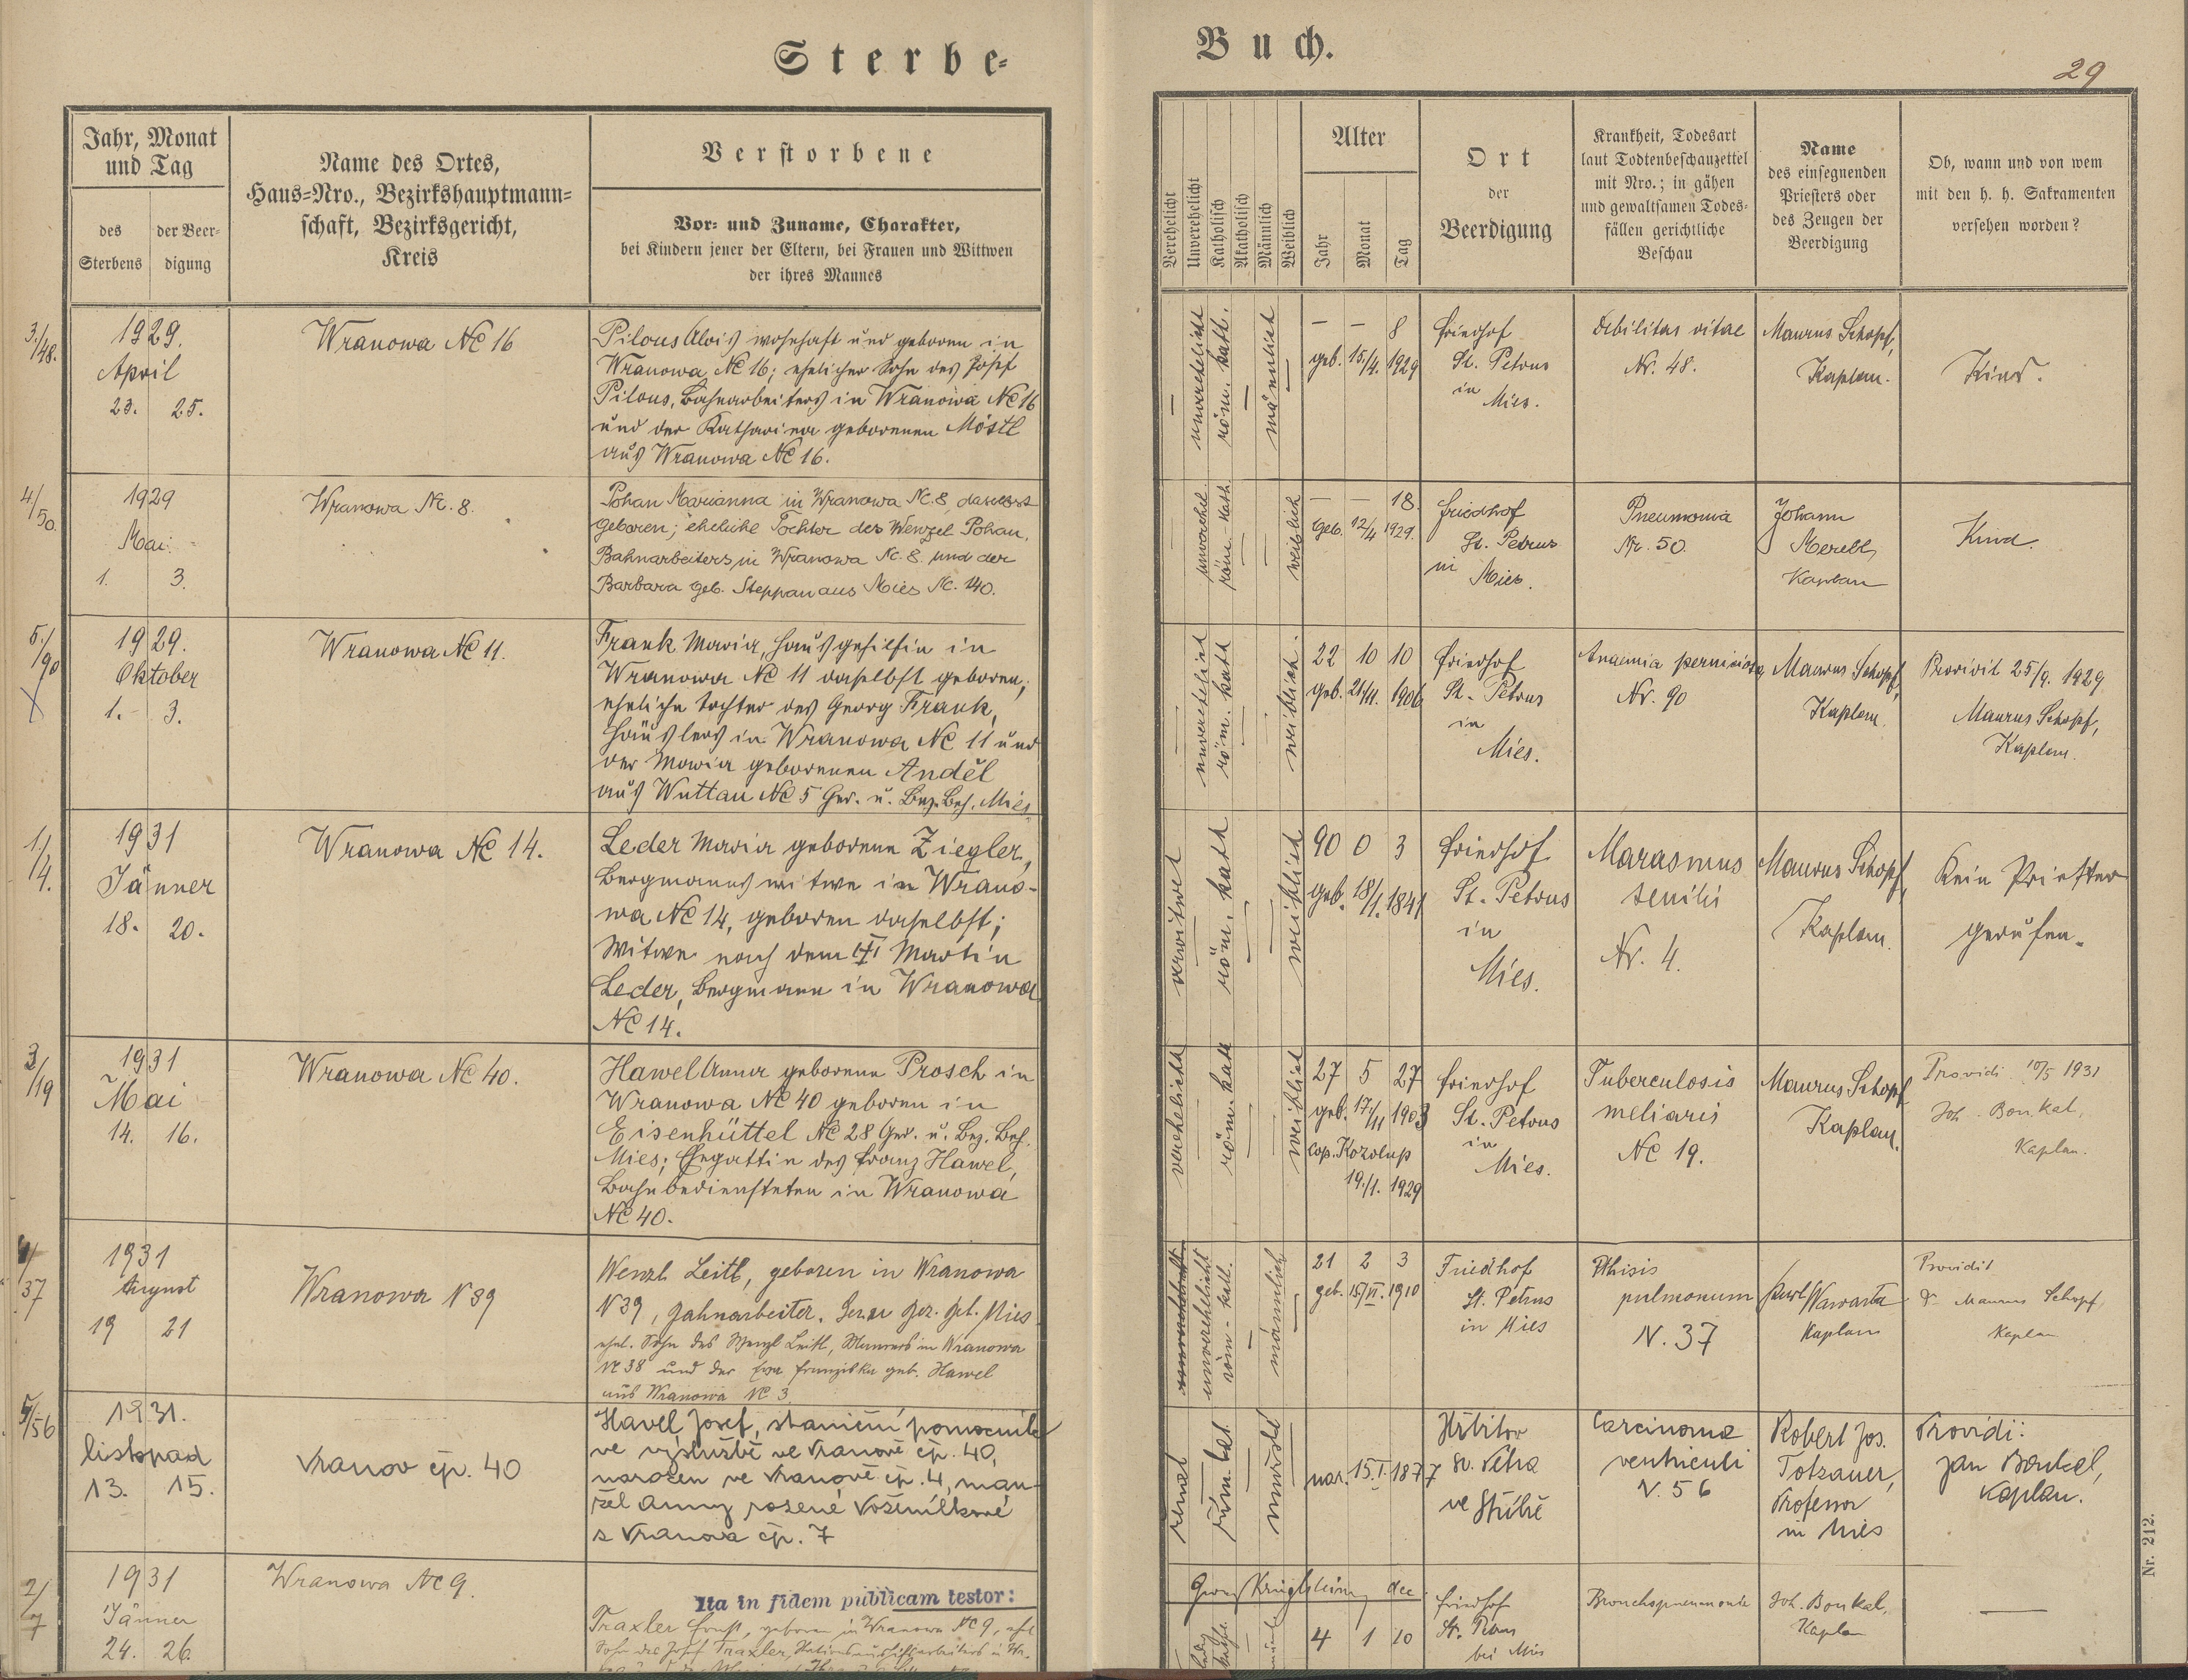 Sterbe-
Buch.
29
Jahr, Monat
und Tag
des
Sterbens
der Beer-
digung
Name des Ortes,
Haus-Nro., Bezirkshauptmann-
schaft, Bezirksgericht,
Kreis
Verstorbene
Vor- und Zuname, Charakter,
bei Kindern jener der Eltern, bei Frauen und Wittwen
der ihres Mannes
Verehelicht
Unverehelicht
Katholisch
Akatholisch
Männlich
Weiblich
Alter
Jahr
Monat
Tag
Ort
der
Beerdigung
Krankheit, Todesart
laut Todtenbeschauzettel
mit Nro.; in gähen
und gewaltsamen Todes-
fällen gerichtliche
Beschau
Name
des einsegnenden
Priesters oder
des Zeugen der
Beerdigung
Ob, wann und von wem
mit den h. h. Sakramenten
versehen worden?
3./48.
1929.
April
23. 25.
Wranowa Nc 16
Pilous Alois wohnhaft und geboren in
Wranowa Nc 16; ehelicher Sohn des Josef
Pilous, Bahnarbeiters in Wranowa Nc 16
und der Katharina geborenen Möstl
aus Wranowa Nc 16.
—
unverehelicht
röm. kath.
—
männlich
—
— — 8
geb. 15/4. 1929
Friedhof
St. Petrus
in
Mies.
Debilitas vitae
Nr. 48.
Maurus Schopf,
Kaplan.
Kind.
4/50.
1929
Mai.
1. 3.
Wranowa Nc. 8.
Pohan Marianna in Wranowa Nc. 8, daselbst
geboren; eheliche Tochter des Wenzel Pohan,
Bahnarbeiters in Wranowa Nc. 8. und der
Barbara geb. Steppan aus Mies Nc. 140.
—
unverehel.
röm. kath.
—
—
weiblich
— — 18.
Geb. 12/4 1929.
Friedhof
St. Petrus
in
Mies.
Pneumonia
Nr. 50.
Johann
Merebl,
Kaplan
Kind.
5./90
1929.
Oktober
1. 3.
Wranowa Nc 11.
Frank Maria, Hausgehilfin in
Wranowa Nc 11 daselbst geboren;
eheliche Tochter des Georg Frank,
Häuslers in Wranowa Nc 11 und
der Maria geborenen Anděl
aus Wuttau Nc 5 Ger. u. Bez. Beh. Mies.
—
unverehelicht
röm. kath
—
—
weiblich.
22 10 10
geb. 21/11. 1906
Friedhof
St. Petrus
in
Mies.
Anaemia perniciosa
Nr. 90
Maurus Schopf,
Kaplan.
Providit 25/9. 1929
Maurus Schopf,
Kaplan.
1/4.
1931
Jänner
18. 20.
Wranowa Nc 14.
Leder Maria geborene Ziegler,
Bergmannswitwe in Wrano-
wa Nc 14, geboren daselbst;
Witwe nach dem † Martin
Leder, Bergmann in Wranowa
Nc 14.
verwitwet
—
röm. kath
—
—
weiblich
90 0 3
geb. 18/1. 1841
Friedhof
St. Petrus
in
Mies.
Marasmus
senilis
Nr. 4.
Maurus Schopf,
Kaplan.
Kein Priester
gerufen.
3/19
1931
Mai
14. 16.
Wranowa Nc 40.
Hawel Anna geborene Prosch in
Wranowa Nc 40 geboren in
Eisenhüttel Nc 28 Ger. u. Bez. Beh.
Mies; Ehegattin des Franz Hawel,
Bahnbediensteten in Wranowa
Nc 40.
verehelicht
—
röm. kath
—
—
weiblich
27 5 27
geb. 17/11 1903
cop. Kozolup
19./1. 1929
Friedhof
St. Petrus
in
Mies.
Tuberculosis
meliaris
Nc 19.
Maurus Schopf
Kaplan.
Providi 10/5 1931
Joh. Boukal,
Kaplan.
4/37
1931
August
19 21
Wranowa N 39
Wenzl Leitl, geboren in Wranowa
N 39, Bahnarbeiter. Ger. u. Bez. Beh. Mies.
ehel. Sohn des Wenzl Leitl, Maurers in Wranowa
Nc 38 und der Eva Franziska geb. Hawel
aus Wranowa Nc 3
unverehelicht
röm. kath.
—
männlich
—
21 2 3
geb. 15/VI. 1910
Friedhof
St. Petrus
in Mies
Pthisis
pulmonum
N. 37
Karl Wawarta
Kaplan
Providit
P. Maurus Schopf,
Kaplan
5/56
1931.
listopad
13. 15.
Vranov čp. 40
Havel Josef, staniční pomocník
ve výslužbě ve Vranově čp. 40,
narozen ve Vranově čp. 4, man-
žel Anny rozené Vošmíkové
z Vranova čp. 7
ženat
—
řím. kat.
—
mužské
—
nar. 15.I.1877
Hřbitov
sv. Petra
ve Stříbře
Carcinoma
ventriculi
N. 56
Robert Jos.
Totzauer,
Professor
in Mies
Providi:
Jan Boukal,
Kaplan.
2/7
1931
Jänner
24. 26.
Wranowa Nc 9.
Ita in fidem publicam testor:
Traxler Ernst, geboren in Wranowa Nc 9, ehl.
Sohn des Josef Traxler,
4 1 10
Friedhof
St. Petrus
bei Mies
Bronchopneumonie
Joh. Boukal,
Kaplan
—
Nr. 212.